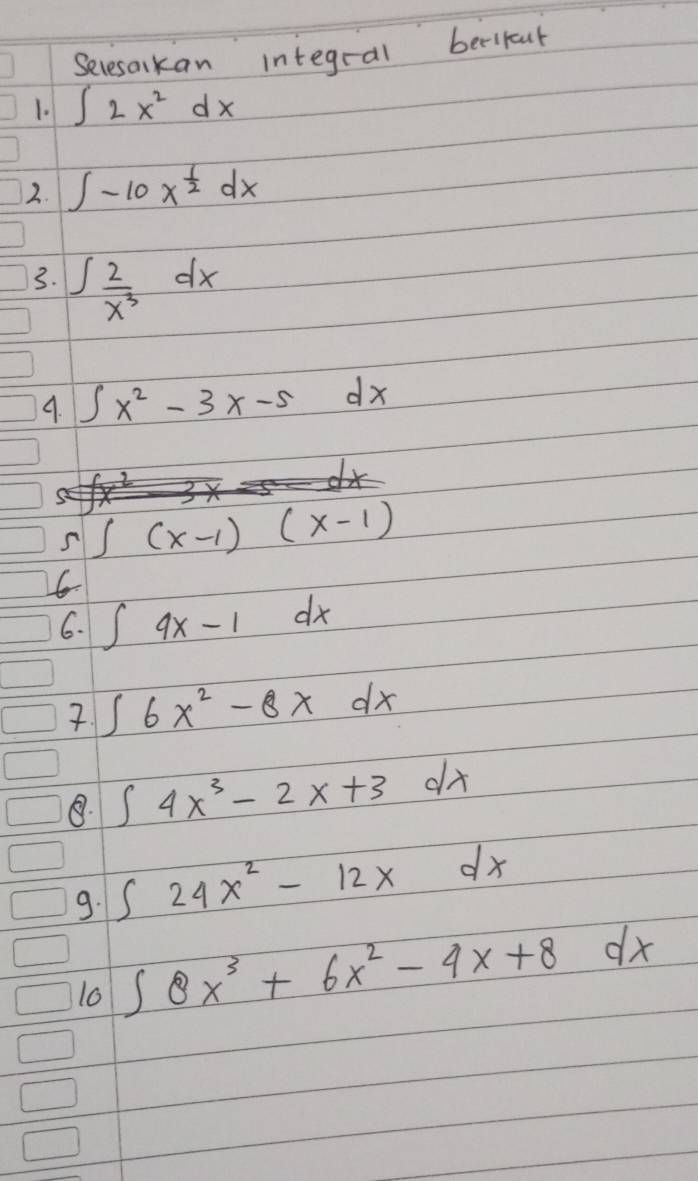 Selesaikan integral berikut
1. ∫ 2x² dx
2. ∫ -10 x^½ dx
3. ∫ 2/x³ dx
4. ∫ x² - 3x - 5 dx
5 ∫x² - 3x - 5 dx
5 ∫ (x-1) (x-1)
6.
6. ∫ 4x - 1 dx
7. ∫ 6x² - 8x dx
8. ∫ 4x³ - 2x + 3 dx
9. ∫ 24x² - 12x dx
10 ∫ 8x³ + 6x² - 4x + 8 dx